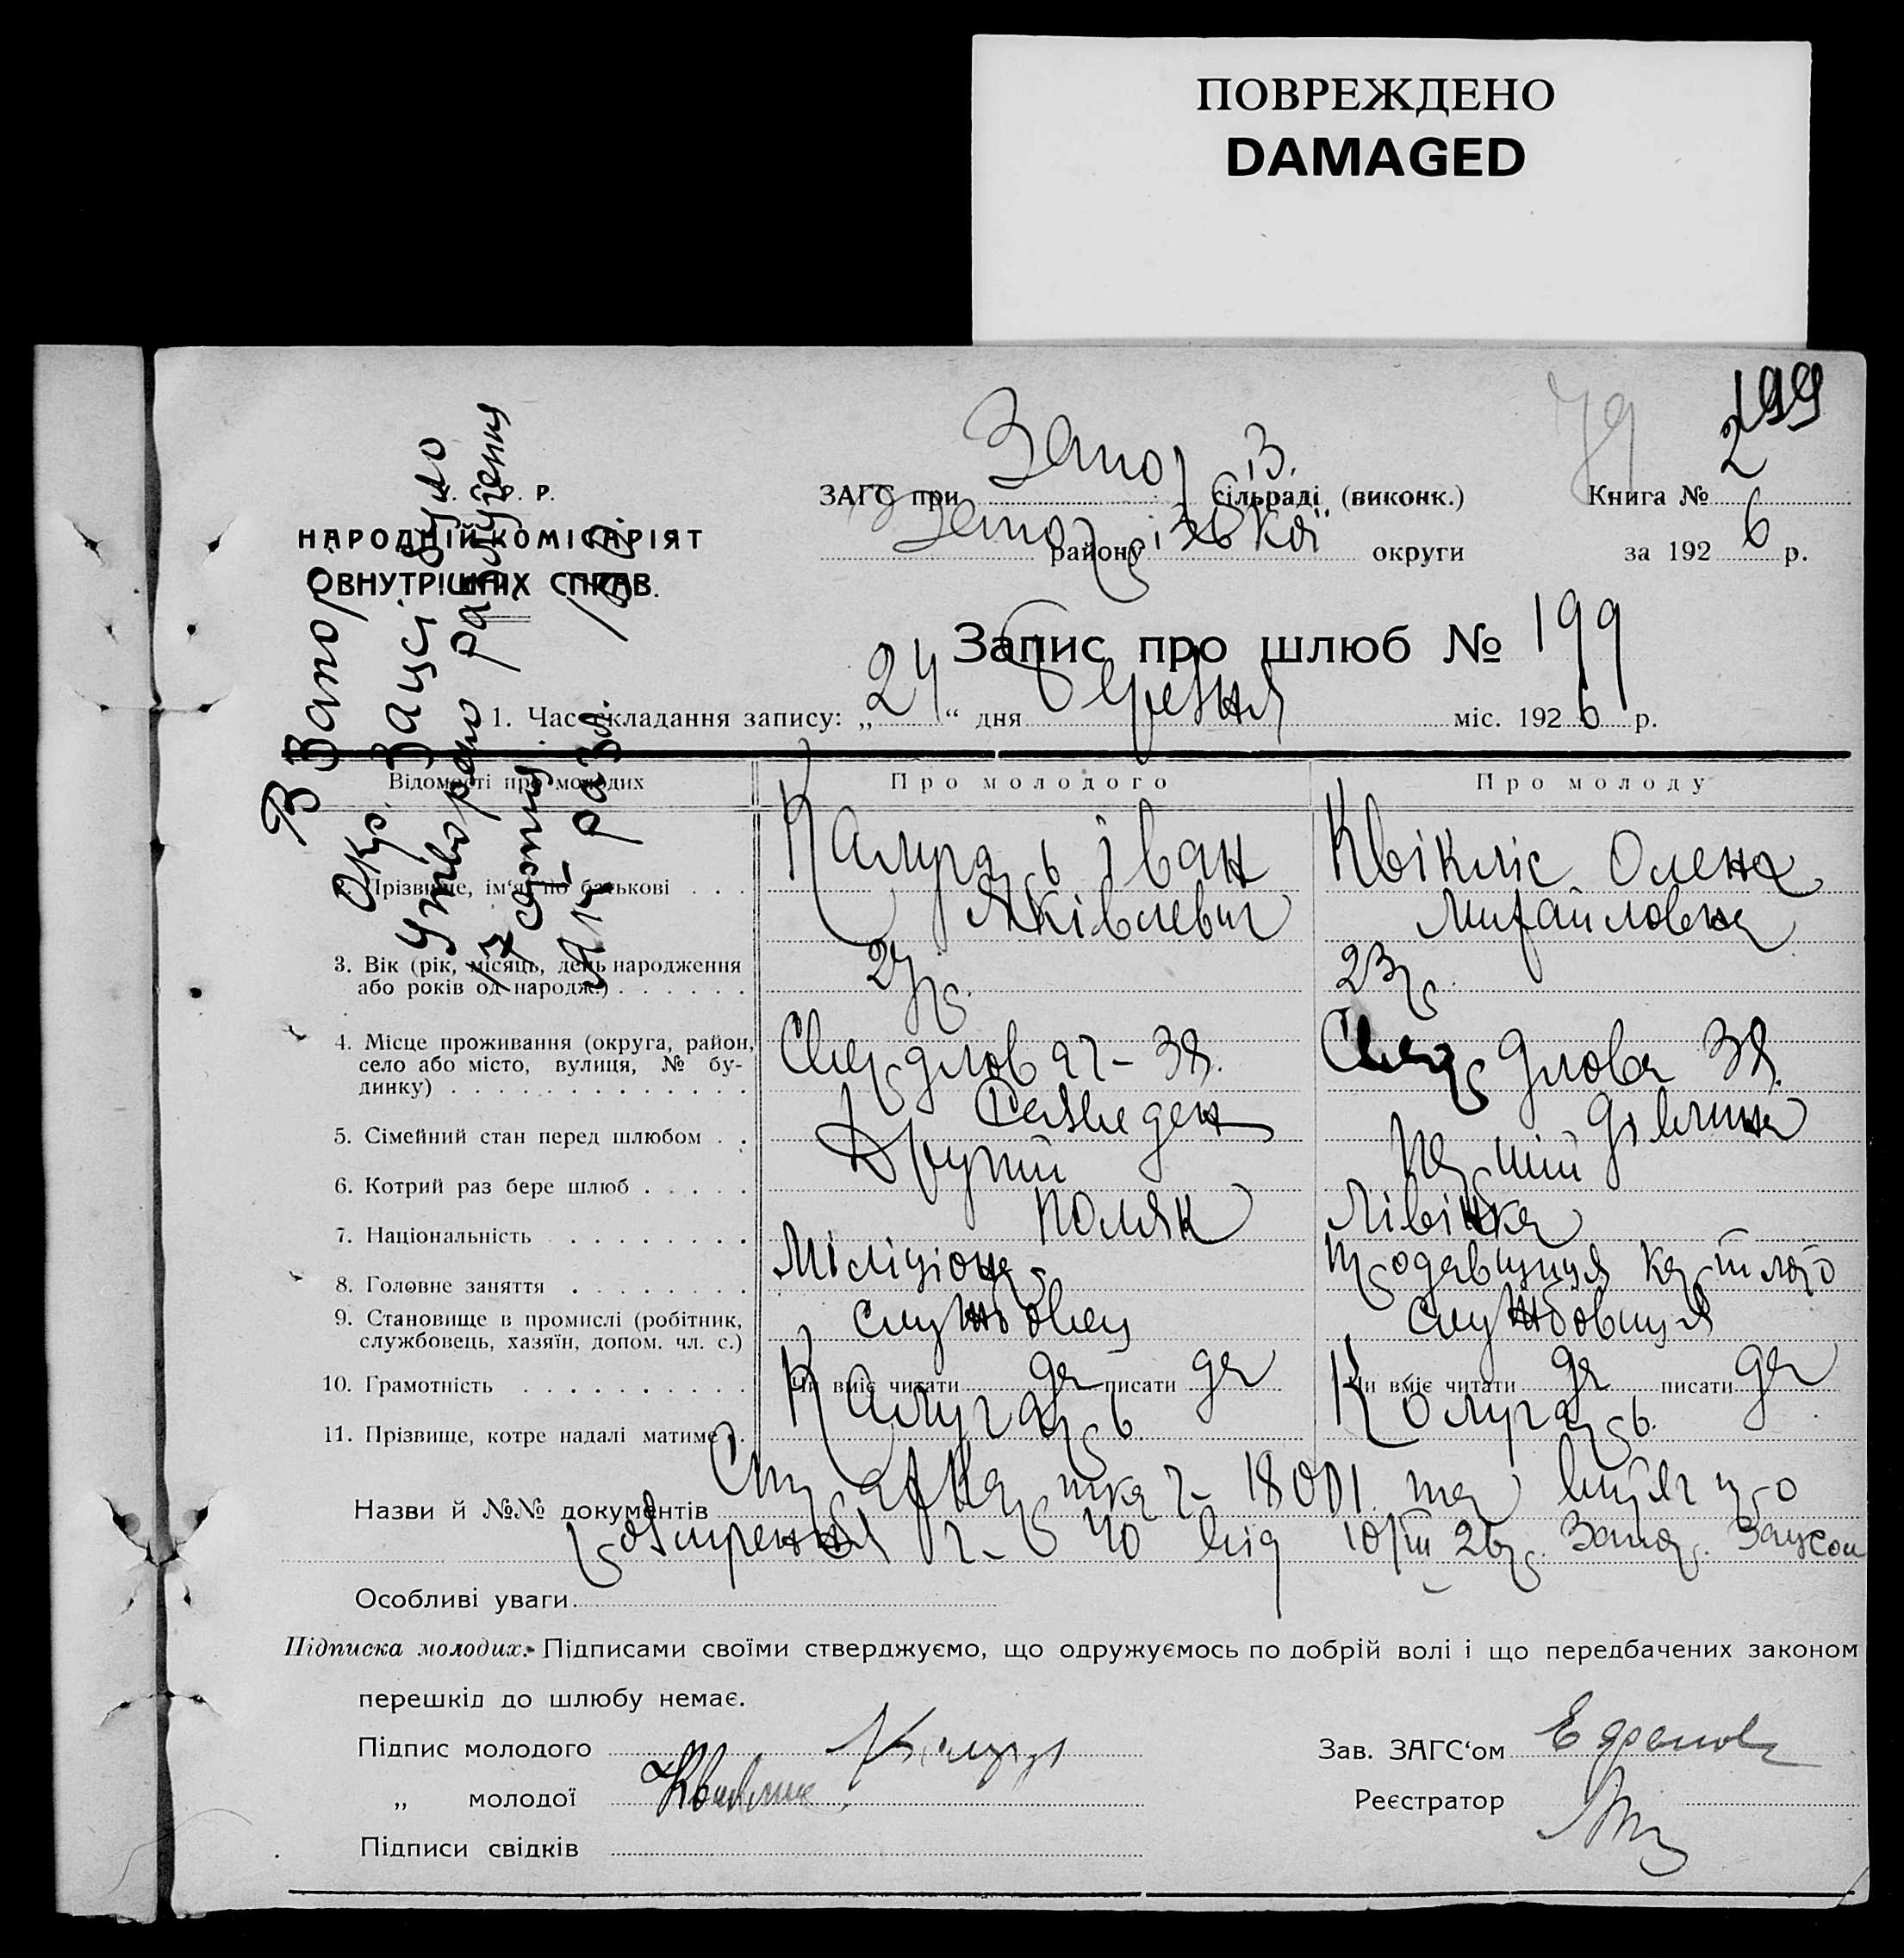 ПОВРЕЖДЕНО
DAMAGED
199
79
2
Запоріз.
ЗАГС при сільраді (виконк.) Книга №
Запорізької
району округи за 1926 р.
Р.
НАРОДНІЙ КОМІСАРІЯТ
ВНУТРІШНІХ СПРАВ.
В Запор.
Окр. Загсі було
утворено розлучення
17 лютня
Акт розл.
Запис про шлюб № 199
1. Час складання запису: „24“ дня березня міс. 1926 р.
Відомості про молодих Про молодого Про молоду
2. Прізвище, ім‘я, по батькові . . . Калугарь Іван Квікліс Олена
Яківлевич Михайловна
3. Вік (рік, місяць, день народження
або років од народж.) . . . . . . 27 р. 23 р.
4. Місце проживання (округа, район,
село або місто, вулиця, № бу-
динку) . . . . . . . . . . . . . Свердлова 38.
5. Сімейний стан перед шлюбом . . дівчина
6. Котрий раз бере шлюб . . . . . Другий Перший
7. Національність . . . . . . . . поляк
8. Головне заняття . . . . . . . . Міліціонер
9. Становище в промислі (робітник,
службовець, хазяїн, допом. чл. с.) службовец службовиця
10. Грамотність . . . . . . . . . . Чи вміє читати да писати да Чи вміє читати да писати да
11. Прізвище, котре надалі матиме . . Калугарь Колугарь.
Назви й №№ документів та витяг про
від 10/III 26 р. Запор. Загсом
Особливі уваги.
Підписка молодих:- Підписами своїми стверджуємо, що одружуємось по добрій волі і що передбачених законом
перешкід до шлюбу немає.
Підпис молодого
„ молодої
Зав. ЗАГС‘ом
Реєстратор
Підписи свідків